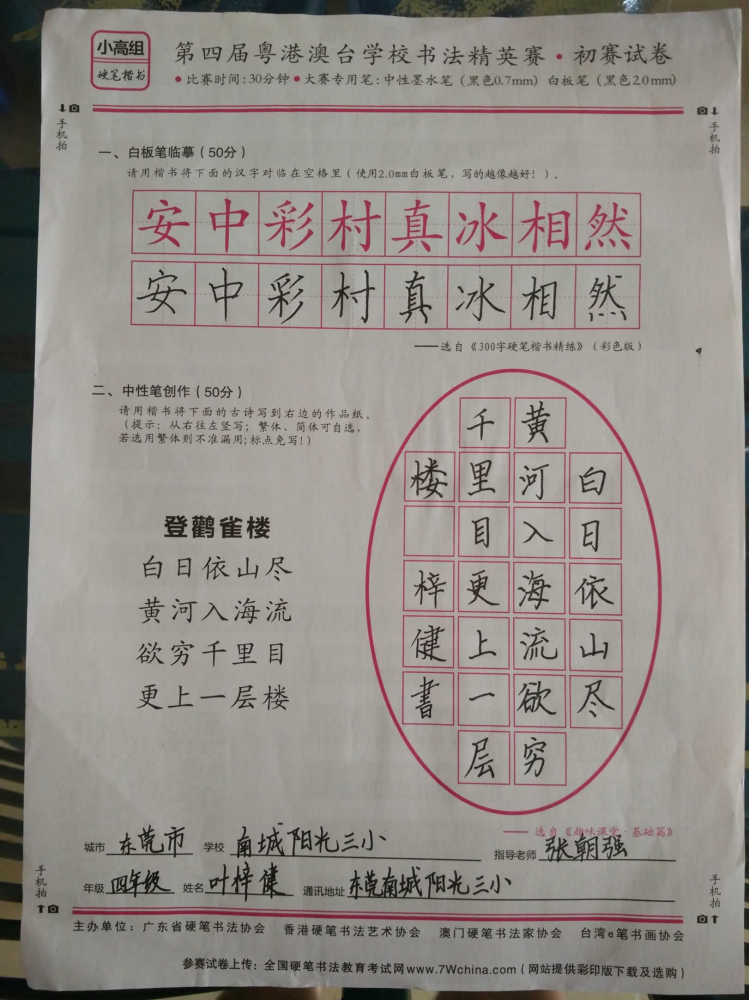 小高组
硬笔楷书
第四届粤港澳台学校书法精英赛·初赛试卷
●比赛时间:30分钟●大赛专用笔:中性墨水笔(黑色0.7mm) 白板笔(黑色2.0mm)
手机拍
手机拍
一、白板笔临摹(50分)
请用楷书将下面的汉字对临在空格里(使用2.0mm白板笔,写的越像越好!)。
安中彩村真冰相然
安中彩村真冰相然
——选自《300字硬笔楷书精练》(彩色版)
二、中性笔创作(50分)
请用楷书将下面的古诗写到右边的作品纸。
(提示:从右往左竖写;繁体、简体可自选,
若选用繁体则不准漏用;标点免写!)
登鹳雀楼
白日依山尽
黄河入海流
欲穷千里目
更上一层楼
白日依山尽
黄河入海流欲穷
千里目更上一层
楼 梓健書
——选自《趣味课堂·基础篇》
城市 东莞市 学校 南城阳光三小 指导老师 张朝强
年级 四年级 姓名 叶梓健 通讯地址 东莞南城阳光三小
手机拍
手机拍
主办单位:广东省硬笔书法协会 香港硬笔书法艺术协会 澳门硬笔书法家协会 台湾e笔书画协会
参赛试卷上传:全国硬笔书法教育考试网www.7Wchina.com(网站提供彩印版下载及选购)